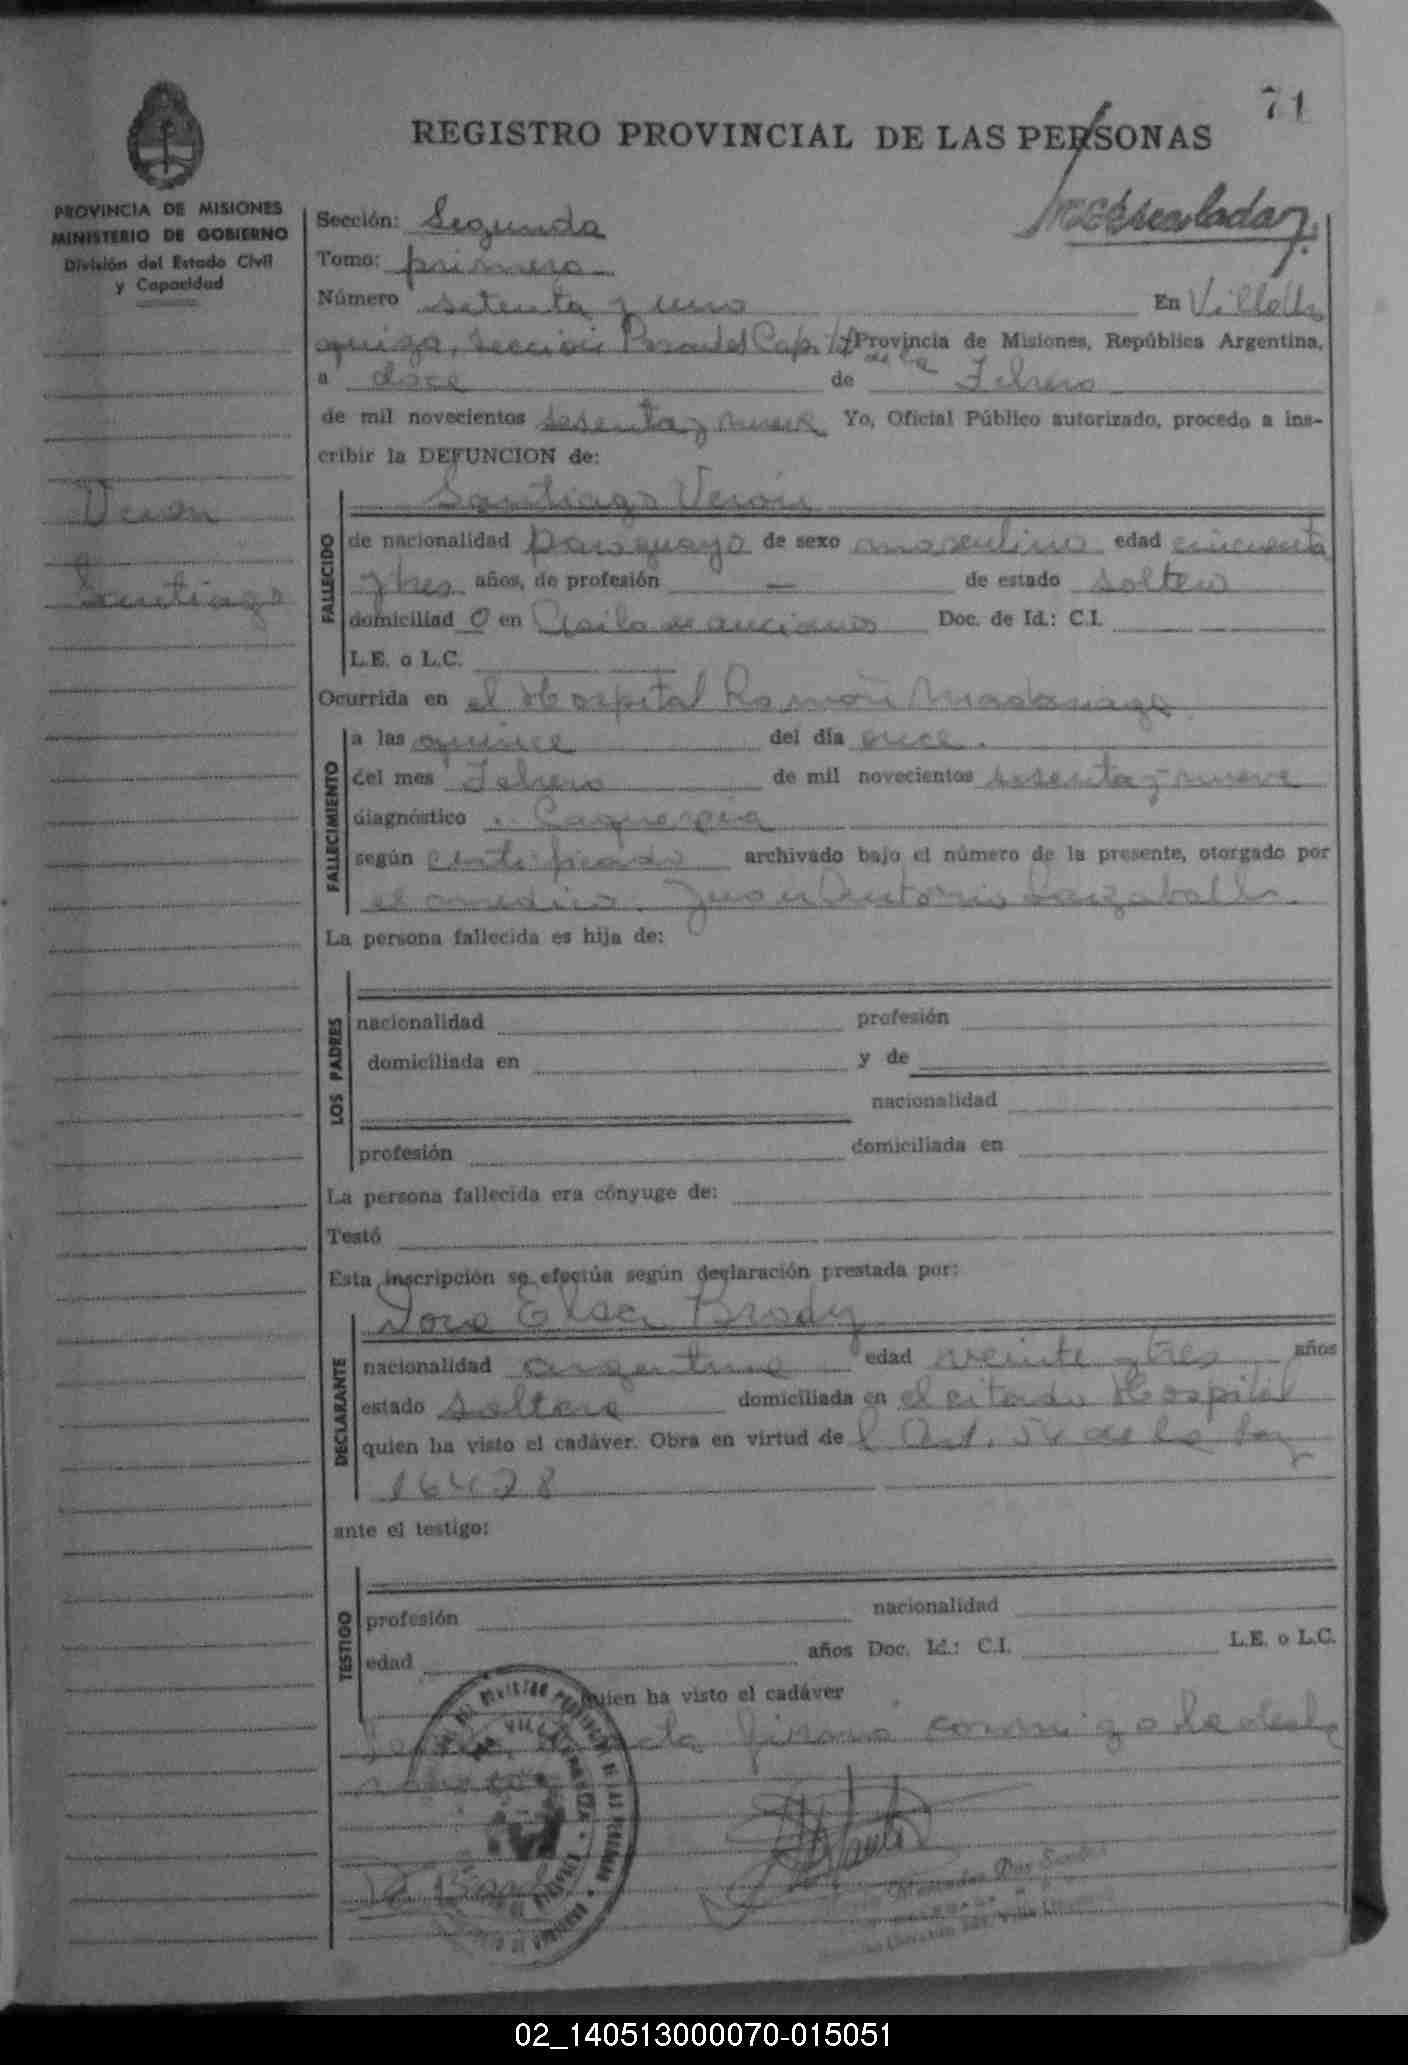 71
REGISTRO PROVINCIAL DE LAS PERSONAS
PROVINCIA DE MISIONES
MINISTERIO DE GOBIERNO
División del Estado Civil
y Capacidad
Sección: Segunda
Tomo: primero
Número setenta y uno En Villa Ur
quiza, Sección Posadas Cap. Provincia de Misiones, República Argentina,
a doce de Febrero
de mil novecientos sesenta y nueve Yo, Oficial Público autorizado, procedo a ins-
cribir la DEFUNCION de:
Santiago Verón
Veron
Santiago
FALLECIDO
de nacionalidad paraguayo de sexo masculino edad cincuenta
y tres años, de profesión — de estado soltero
domiciliad o en Asilo de ancianos Doc. de Id.: C.I.
L.E. o L.C.
Ocurrida en el Hospital Ramón Madariaga
FALLECIMIENTO
a las quince del día once.
del mes Febrero de mil novecientos sesenta y nueve
diagnóstico Caquexia
según certificado archivado bajo el número de la presente, otorgado por
el médico Juan Antonio
La persona fallecida es hija de:
LOS PADRES
nacionalidad profesión
domiciliada en y de
nacionalidad
profesión domiciliada en
La persona fallecida era cónyuge de:
Testó
Esta inscripción se efectúa según declaración prestada por:
Dora Elsa Brody
DECLARANTE
nacionalidad argentina edad veinte y tres años
estado soltera domiciliada en el citado Hospital
quien ha visto el cadáver. Obra en virtud de l Art. 54 de la Ley
16478
ante el testigo:
TESTIGO
profesión nacionalidad
edad años Doc. Id.: C.I. L.E. o L.C.
quien ha visto el cadáver
firma conmigo la decla
02_140513000070-015051